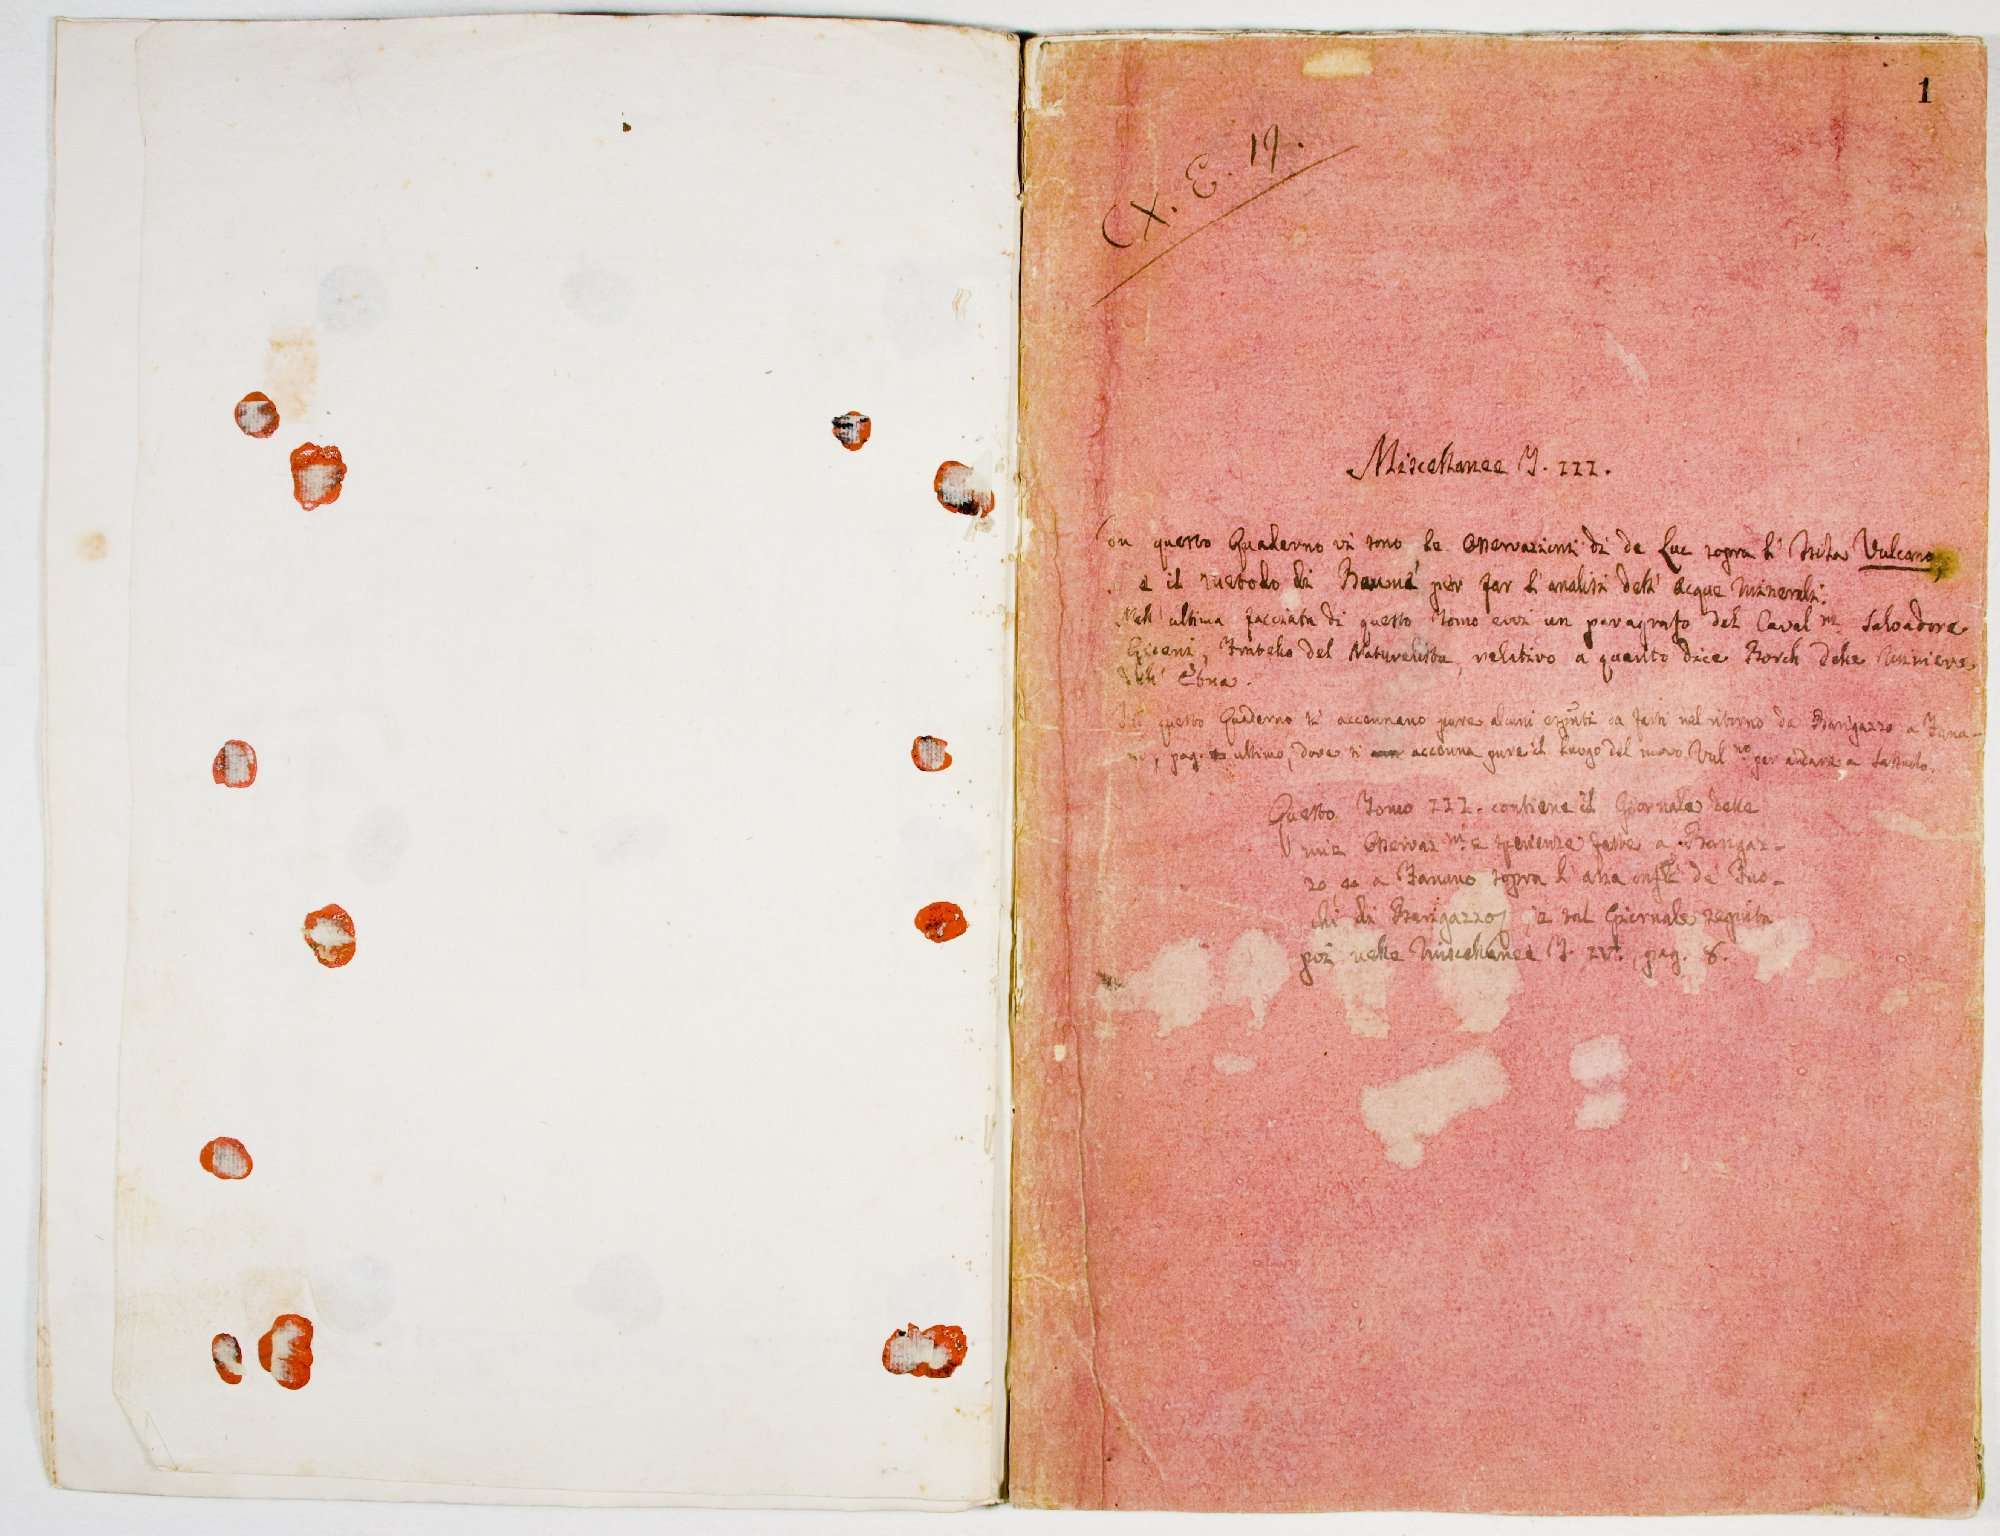 1
CX. E. 19.
Miscellanee T. III.
Con questo Quaderno vi sono le Osservazioni di de Luc sopra l' Isola Vulcano,
e il metodo di Beaumé per far l' analisi dell' acque minerali.
Nell' ultima facciata di questo Tomo evvi un paragrafo del Caval.re Salvadore
Gioeni, Fratello del Naturalista, relativo a quanto dice Borch delle miniere
dell' Etna.
In questo Quaderno si accennano pure alcuni da farsi nel ritorno da Barigazzo a Fana-
no, pag. ultimo, dove si accenna pure il luogo del nuovo Vul.no per andare a Sassuolo.
Questo Tomo III. contiene il Giornale delle
mie Osservaz.ni e sperienze fatte a Barigaz-
zo a Fanano sopra l' aria de' Fuo-
chi di Barigazzo, e tal Giornale seguita
poi nelle Miscellanee T. IV. pag. 8.